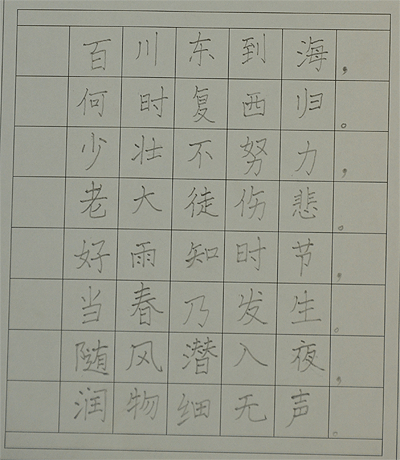 百川东到海，
何时复西归。
少壮不努力，
老大徒伤悲。
好雨知时节，
当春乃发生。
随风潜入夜，
润物细无声。